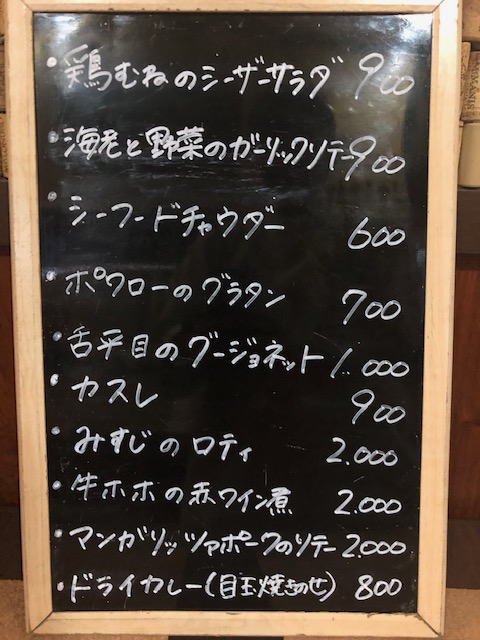 ・鶏むねのシーザーサラダ 900
・海老と野菜のガーリックソテー 900
・シーフードチャウダー 600
・ポワローのグラタン 700
・舌平目のグージョネット 1.000
・カスレ 900
・みすじのロティ 2.000
・牛ホホの赤ワイン煮 2.000
・マンガリッツァポークのソテー 2.000
・ドライカレー(目玉焼きのせ) 800